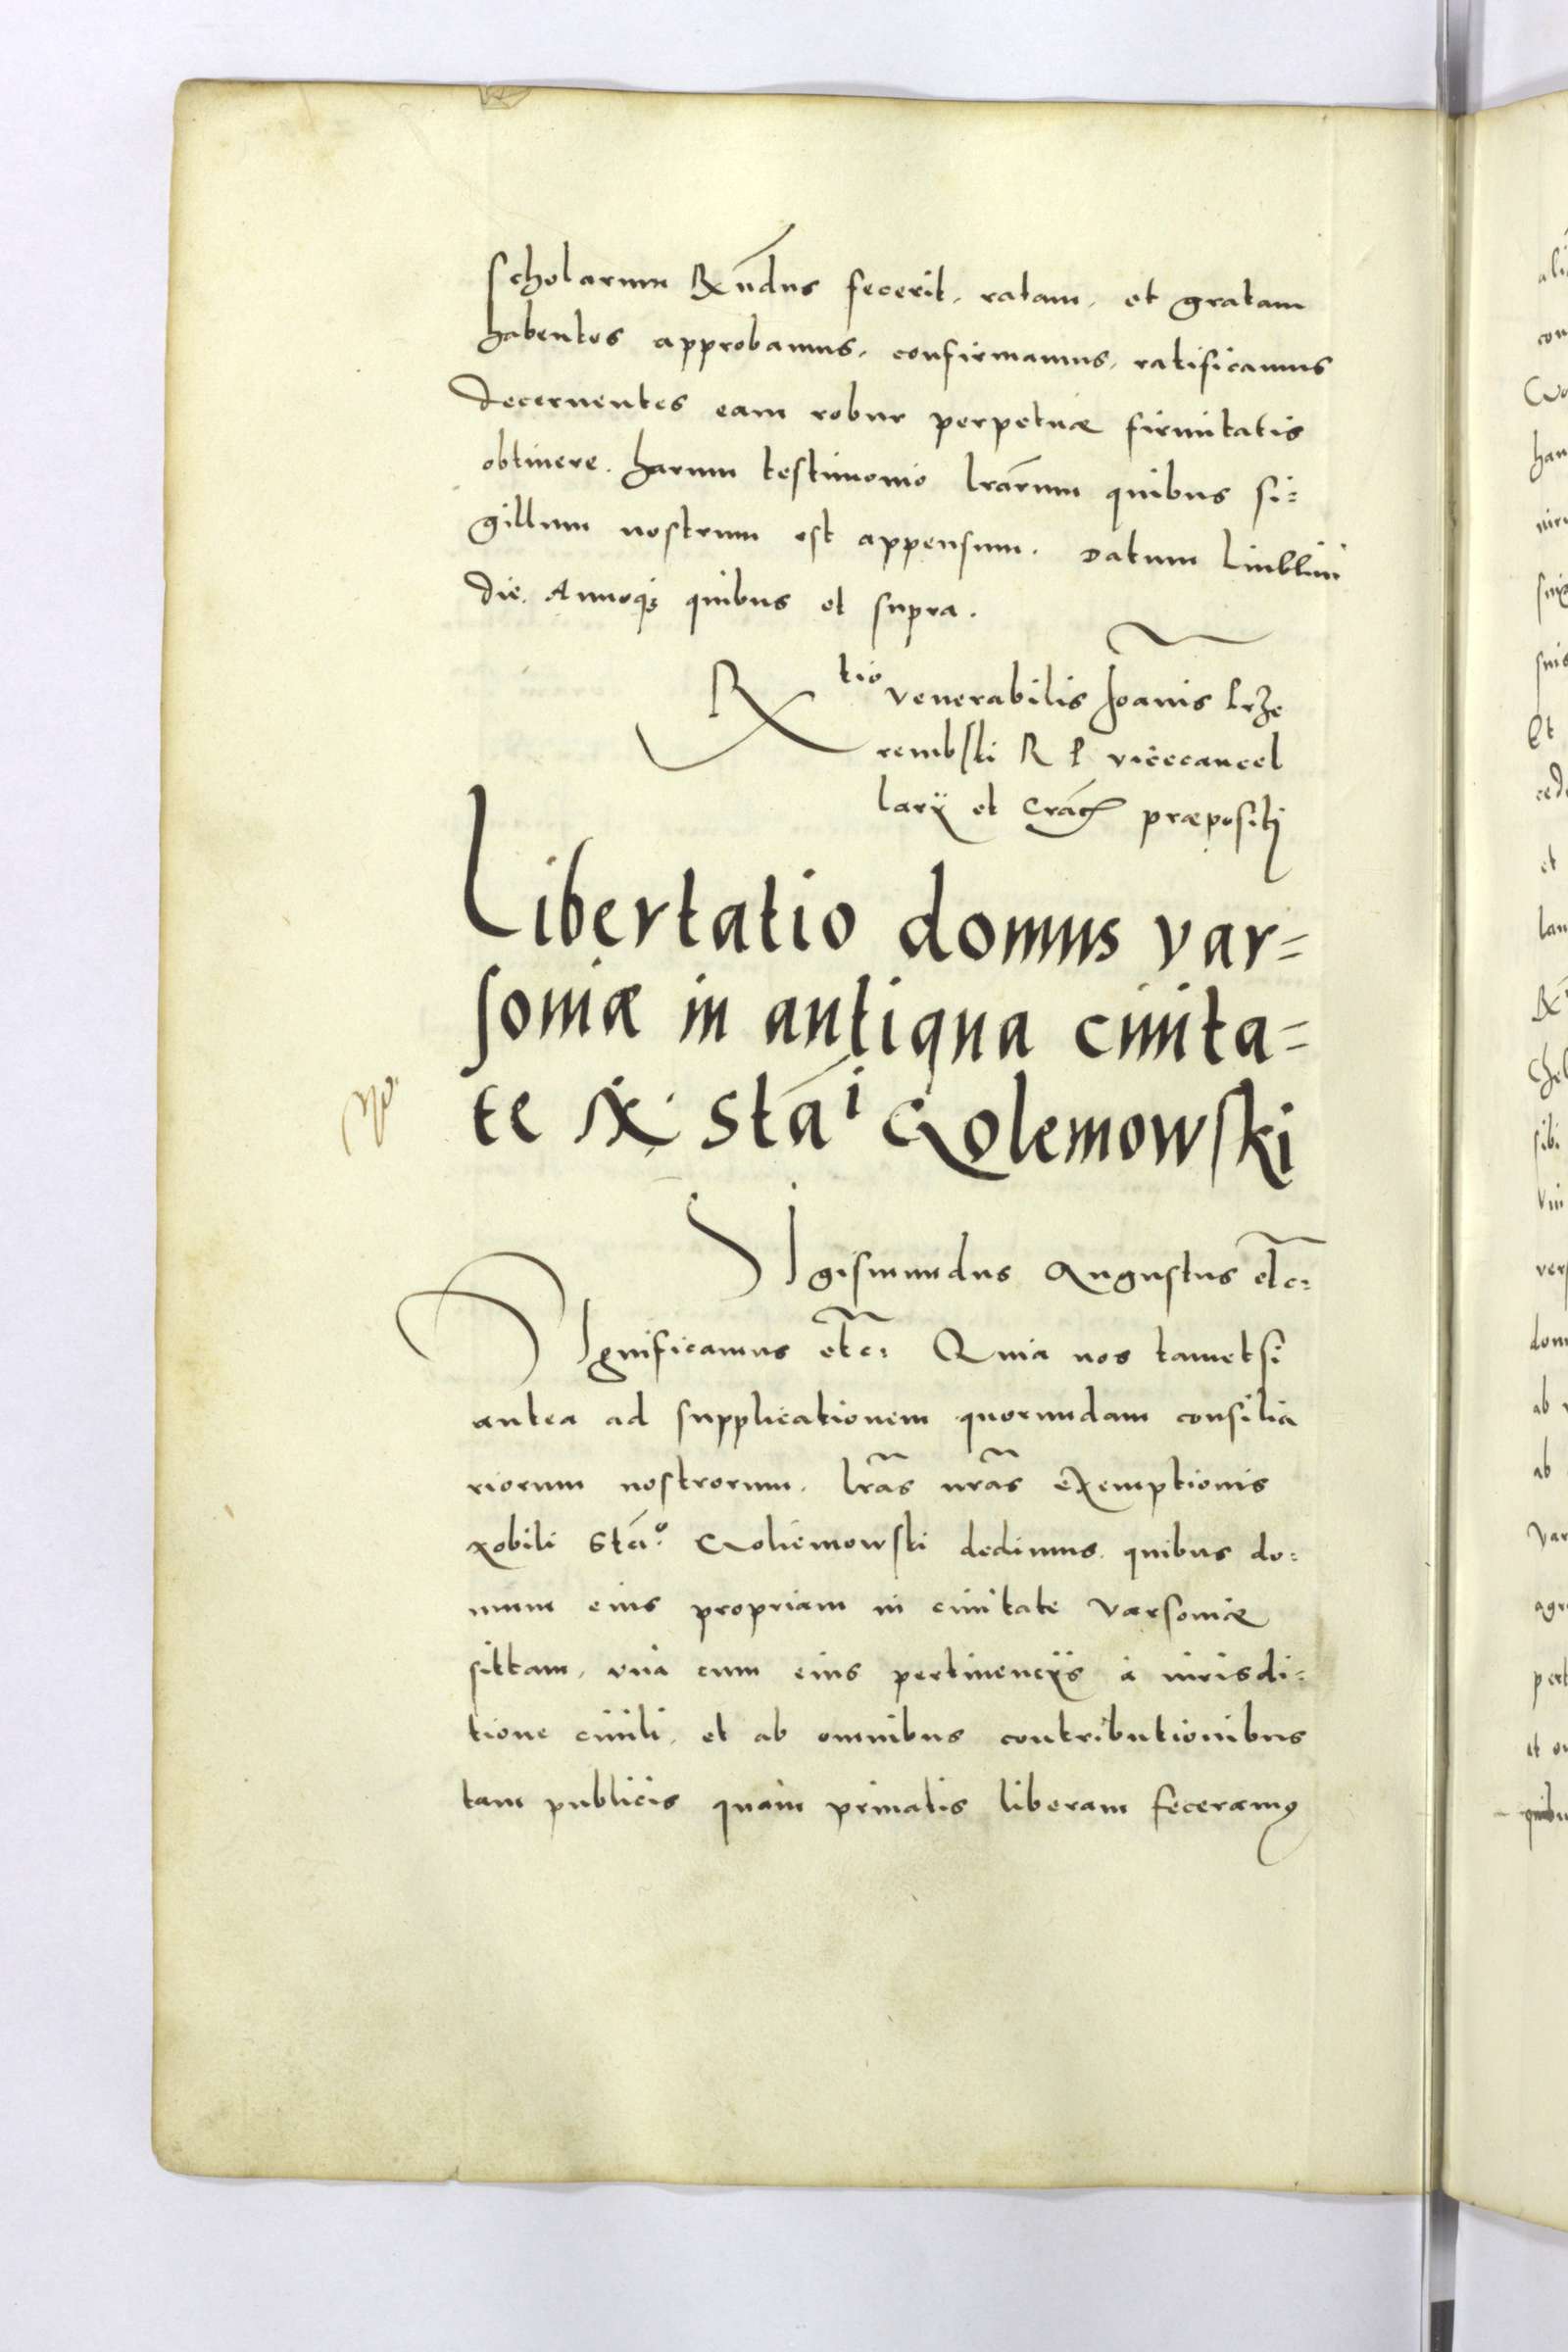 scholarum Rndus fecerit, ratam, et gratam
habentes approbamus, confirmamus, ratificamus
decernentes eam robur perpetuæ firmitatis
obtinere. harum testimonio lrarum quibus si=
gillum nostrum est appensum. Datum Lublini
die, Annoq; quibus et supra.
Rtio venerabilis Joanis Prze
rembski R P vicecancel
larij et Crac præpositi
Libertatio domus var=
soviæ in antiqua civita=
te N: Stai Wolemowski
No.
Sigismundus Augustus etc:
Significamus etc: Quia nos tametsi
antea ad supplicationem quorundam consilia
riorum nostrorum, lras nras exemptionis
Nobili Stao. Woliemowski dedimus, quibus do=
mum eius propriam in civitate Varsoviæ
sittam, una cum eius pertinencijs à iurisdi=
tione civili, et ab omnibus contributionibus
tam publicis quam privatis liberam feceramus